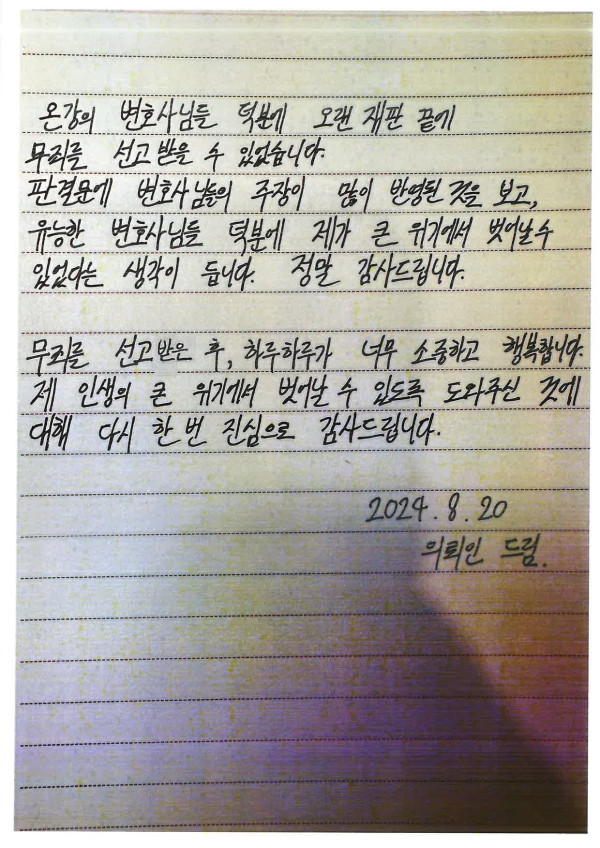 온강의 변호사님들 덕분에 오랜 재판 끝에
무죄를 선고 받을 수 있었습니다.
판결문에 변호사님들의 주장이 많이 반영된 것을 보고,
유능한 변호사님들 덕분에 제가 큰 위기에서 벗어날 수
있었다는 생각이 듭니다. 정말 감사드립니다.
무죄를 선고 받은 후, 하루하루가 너무 소중하고 행복합니다.
제 인생의 큰 위기에서 벗어날 수 있도록 도와주신 것에
대해 다시 한 번 진심으로 감사드립니다.
2024. 8. 20
의뢰인 드림.